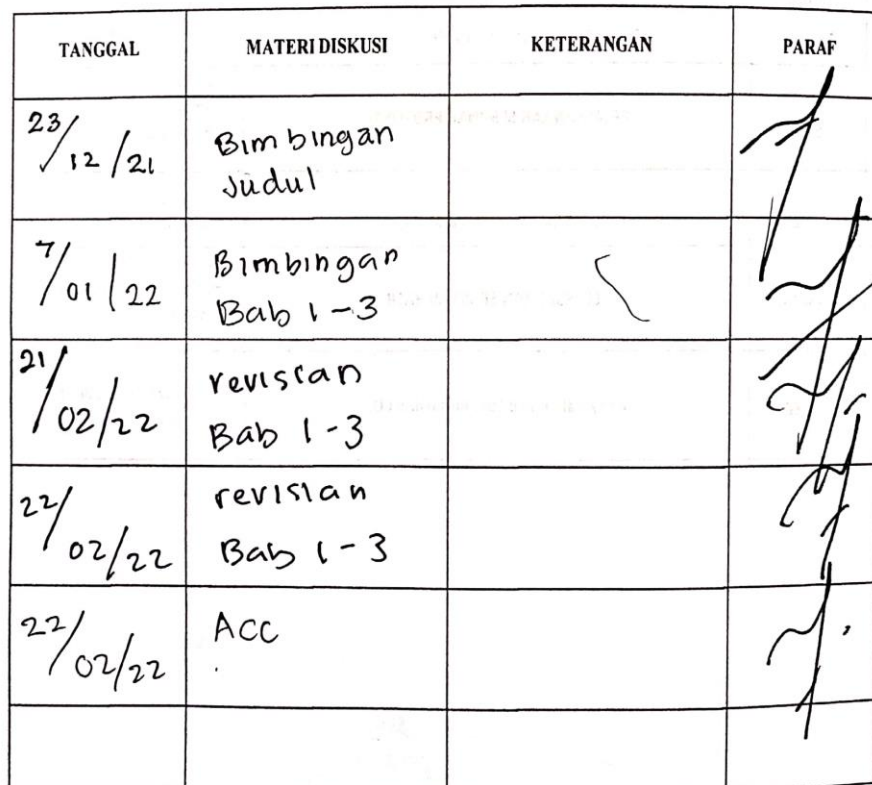 TANGGAL MATERI DISKUSI KETERANGAN PARAF
23/12/21 Bimbingan
Judul
7/01/22 Bimbingan
Bab 1-3
21/02/22 revisian
Bab 1-3
22/02/22 revisian
Bab 1-3
22/02/22 ACC